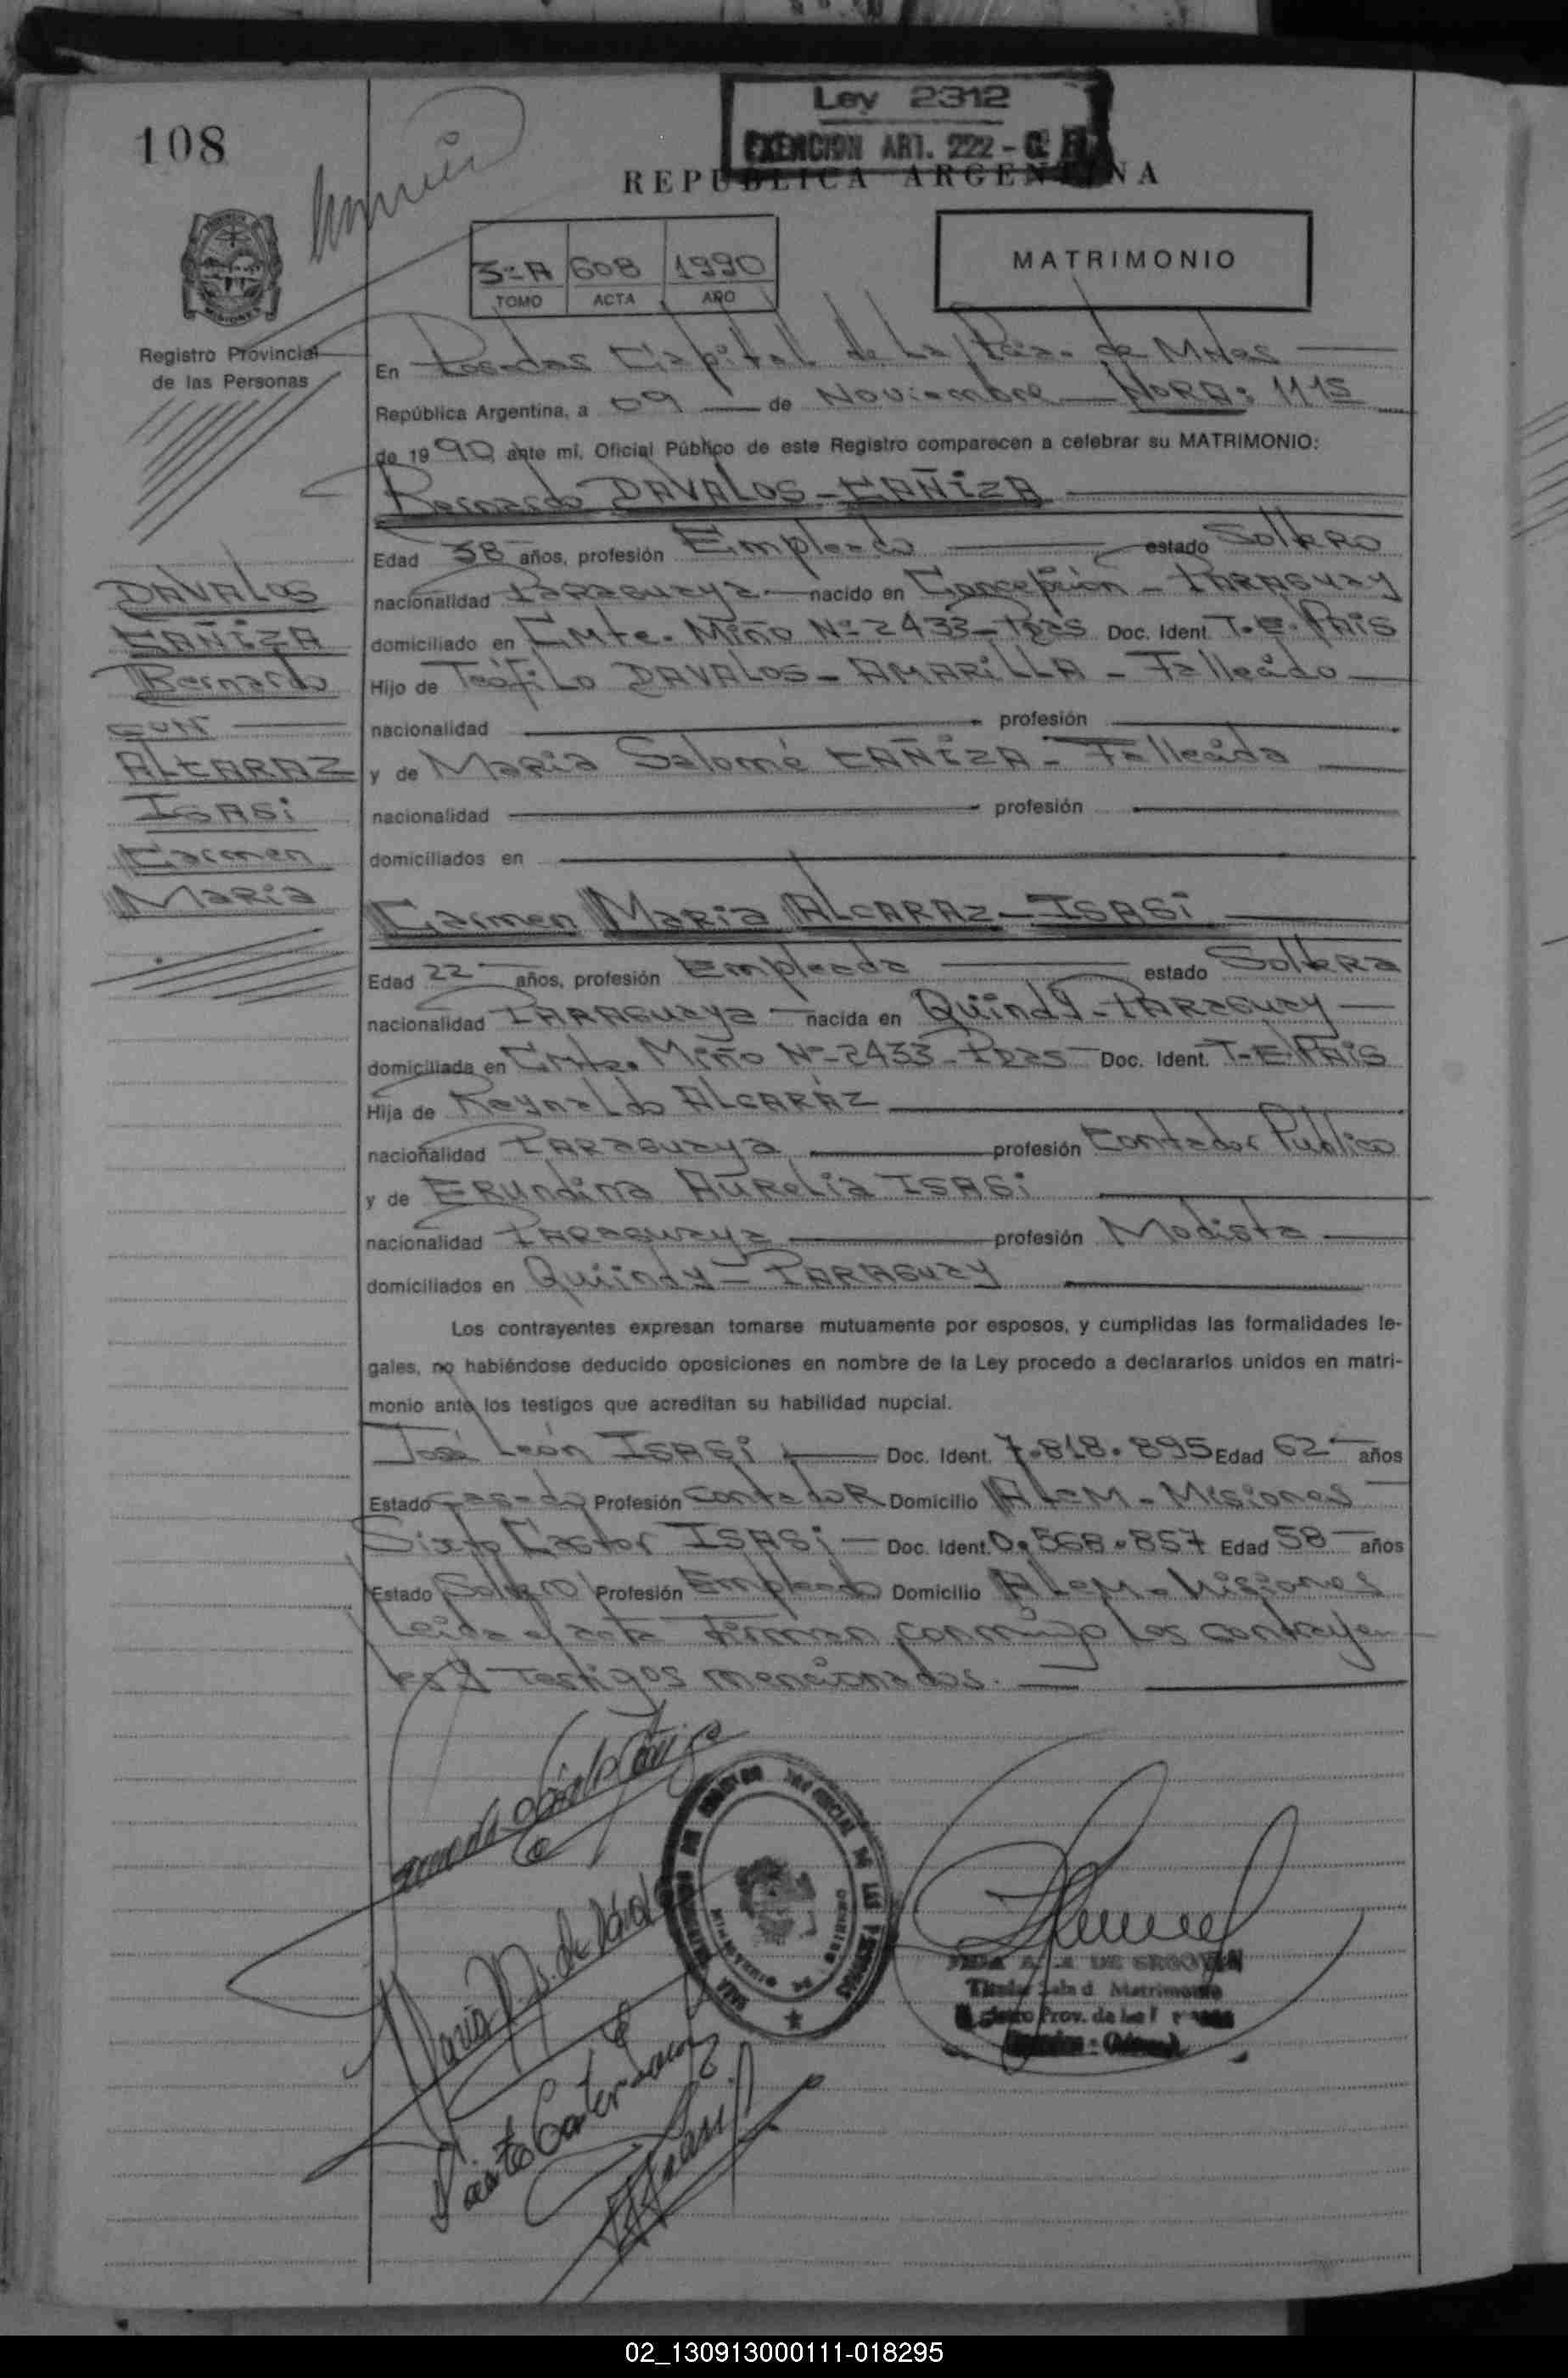 108
Ley 2312
EXENCION ART. 222 - C.
REPUBLICA ARGENTINA
3=A 608 1990
TOMO ACTA AÑO
MATRIMONIO
Registro Provincial
de las Personas
En Posadas Capital de La Pcia. de Mnes
República Argentina, a 09 de Noviembre HORA: 1115
de 1990 ante mí, Oficial Público de este Registro comparecen a celebrar su MATRIMONIO:
Bernardo DAVALOS - CAÑIZA
Edad 38 años, profesión Empleado estado Soltero
nacionalidad PARAGUAYA nacido en Concepción - PARAGUAY
domiciliado en Cmte. Miño Nº 2433 - Pdas Doc. Ident. T.E. PAIS
Hijo de Teófilo DAVALOS - AMARILLA - Fallecido
nacionalidad profesión
y de Maria Salomé CAÑIZA - Fallecida
nacionalidad profesión
domiciliados en
DAVALOS
CAÑIZA
Bernardo
CON
ALCARAZ
ISASi
Carmen
Maria
Carmen Maria ALCARAZ - ISASi
Edad 22 años, profesión Empleada estado Soltera
nacionalidad PARAGUAYA nacida en Quindy - PARAGUAY
domiciliada en Cmte. Miño Nº 2433 - Pdas Doc. Ident. T.E. PAIS
Hija de Reynaldo ALCARÁZ
nacionalidad PARAGUAYA profesión Contador Publico
y de ERUndina AURelia ISASi
nacionalidad PARAGUAYA profesión Modista
domiciliados en Quiindy - PARAGUAY
Los contrayentes expresan tomarse mutuamente por esposos, y cumplidas las formalidades le-
gales, no habiéndose deducido oposiciones en nombre de la Ley procedo a declararlos unidos en matri-
monio ante los testigos que acreditan su habilidad nupcial.
José León ISASi Doc. Ident. 7.818.895 Edad 62 años
Estado Casado Profesión Contador Domicilio ALEM - Misiones
Sixto Castor ISASi Doc. Ident. 0.568.857 Edad 58 años
Estado Soltero Profesión Empleado Domicilio ALEM - Misiones
Leida el acta firman conmigo los contrayen
tes y Testigos mencionados.
DE LAS PERSONAS
Matrimonio
Prov. de las
02_130913000111-018295